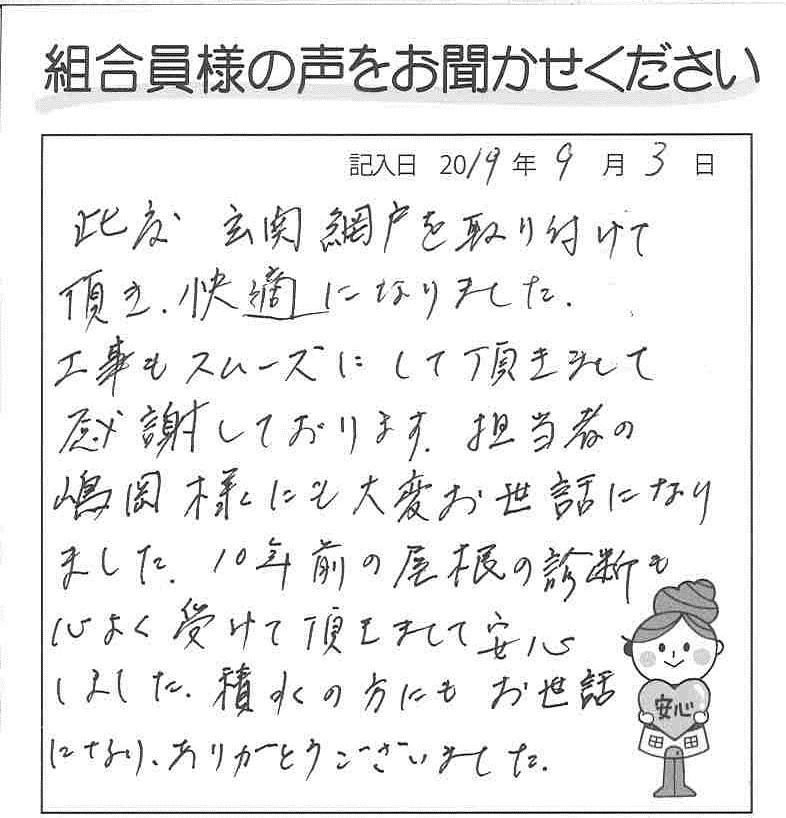 組合員様の声をお聞かせください
記入日 2019年 9月 3日
此度 玄関網戸を取り付けて
頂き、快適になりました。
工事もスムーズにして頂きまして
感謝しております。担当者の
嶋岡様にも大変お世話になり
ました。10年前の屋根の診断も
心よく受けて頂きまして安心
しました。積水の方にもお世話
になり、ありがとうございました。
安心